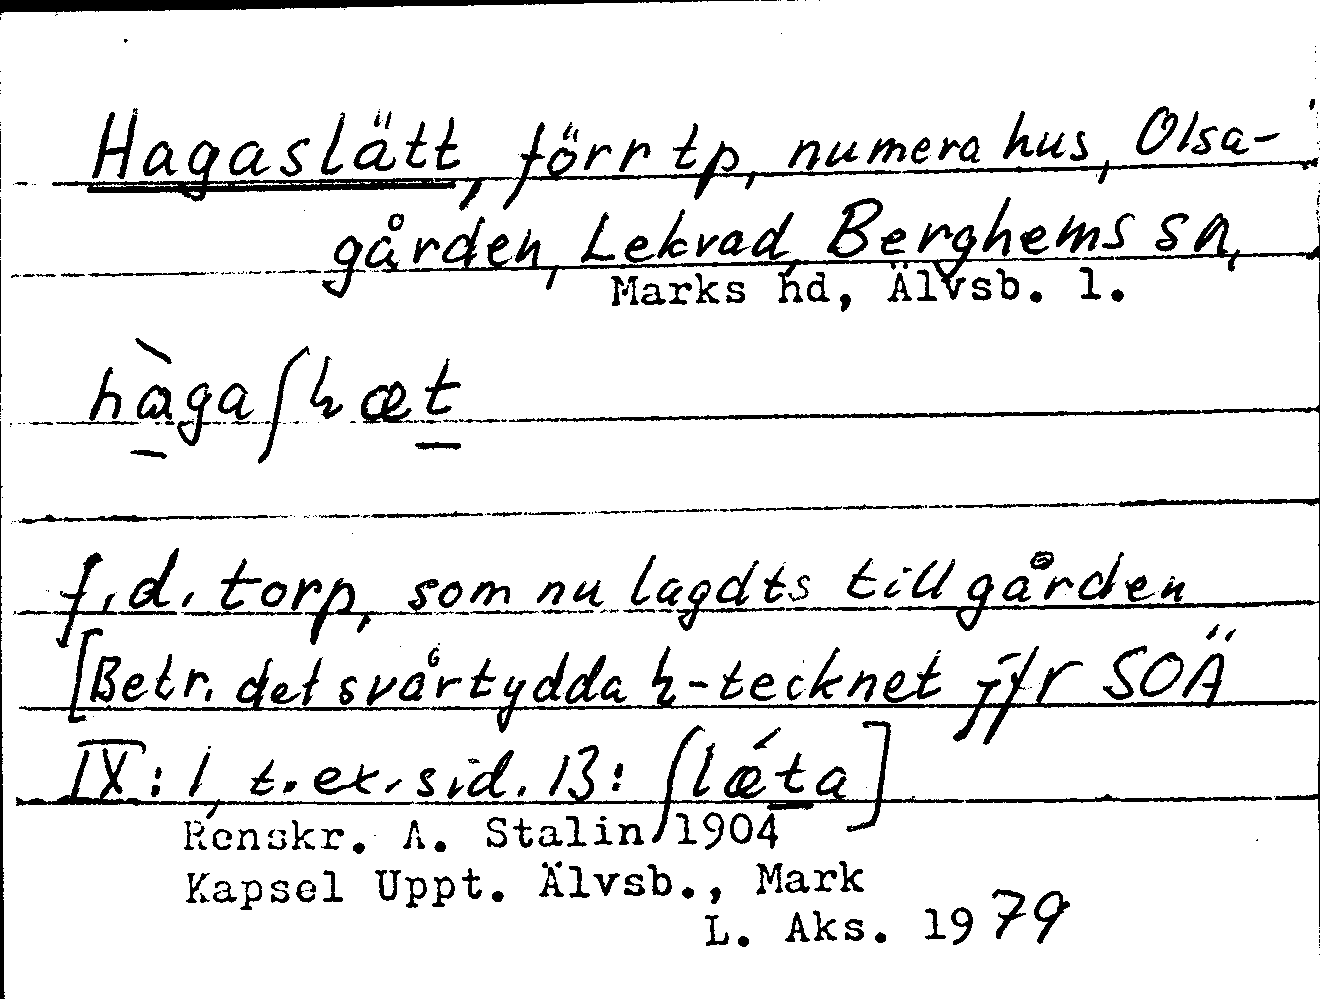 Hagaslätt, förr tp, numera hus, Olsa-
gården, Lekvad, Berghems sn,
Marks hd, Älvsb. l.
hàgaʃɦæt
f.d. torp, som nu lagdts till gården
[Betr. det svårtydda ɦ-tecknet jfr SOÄ
IX: 1, t.ex. sid. 13: ʃlǽta]
Renskr. A. Stalin 1904
Kapsel Uppt. Älvsb., Mark
L. Aks. 1979